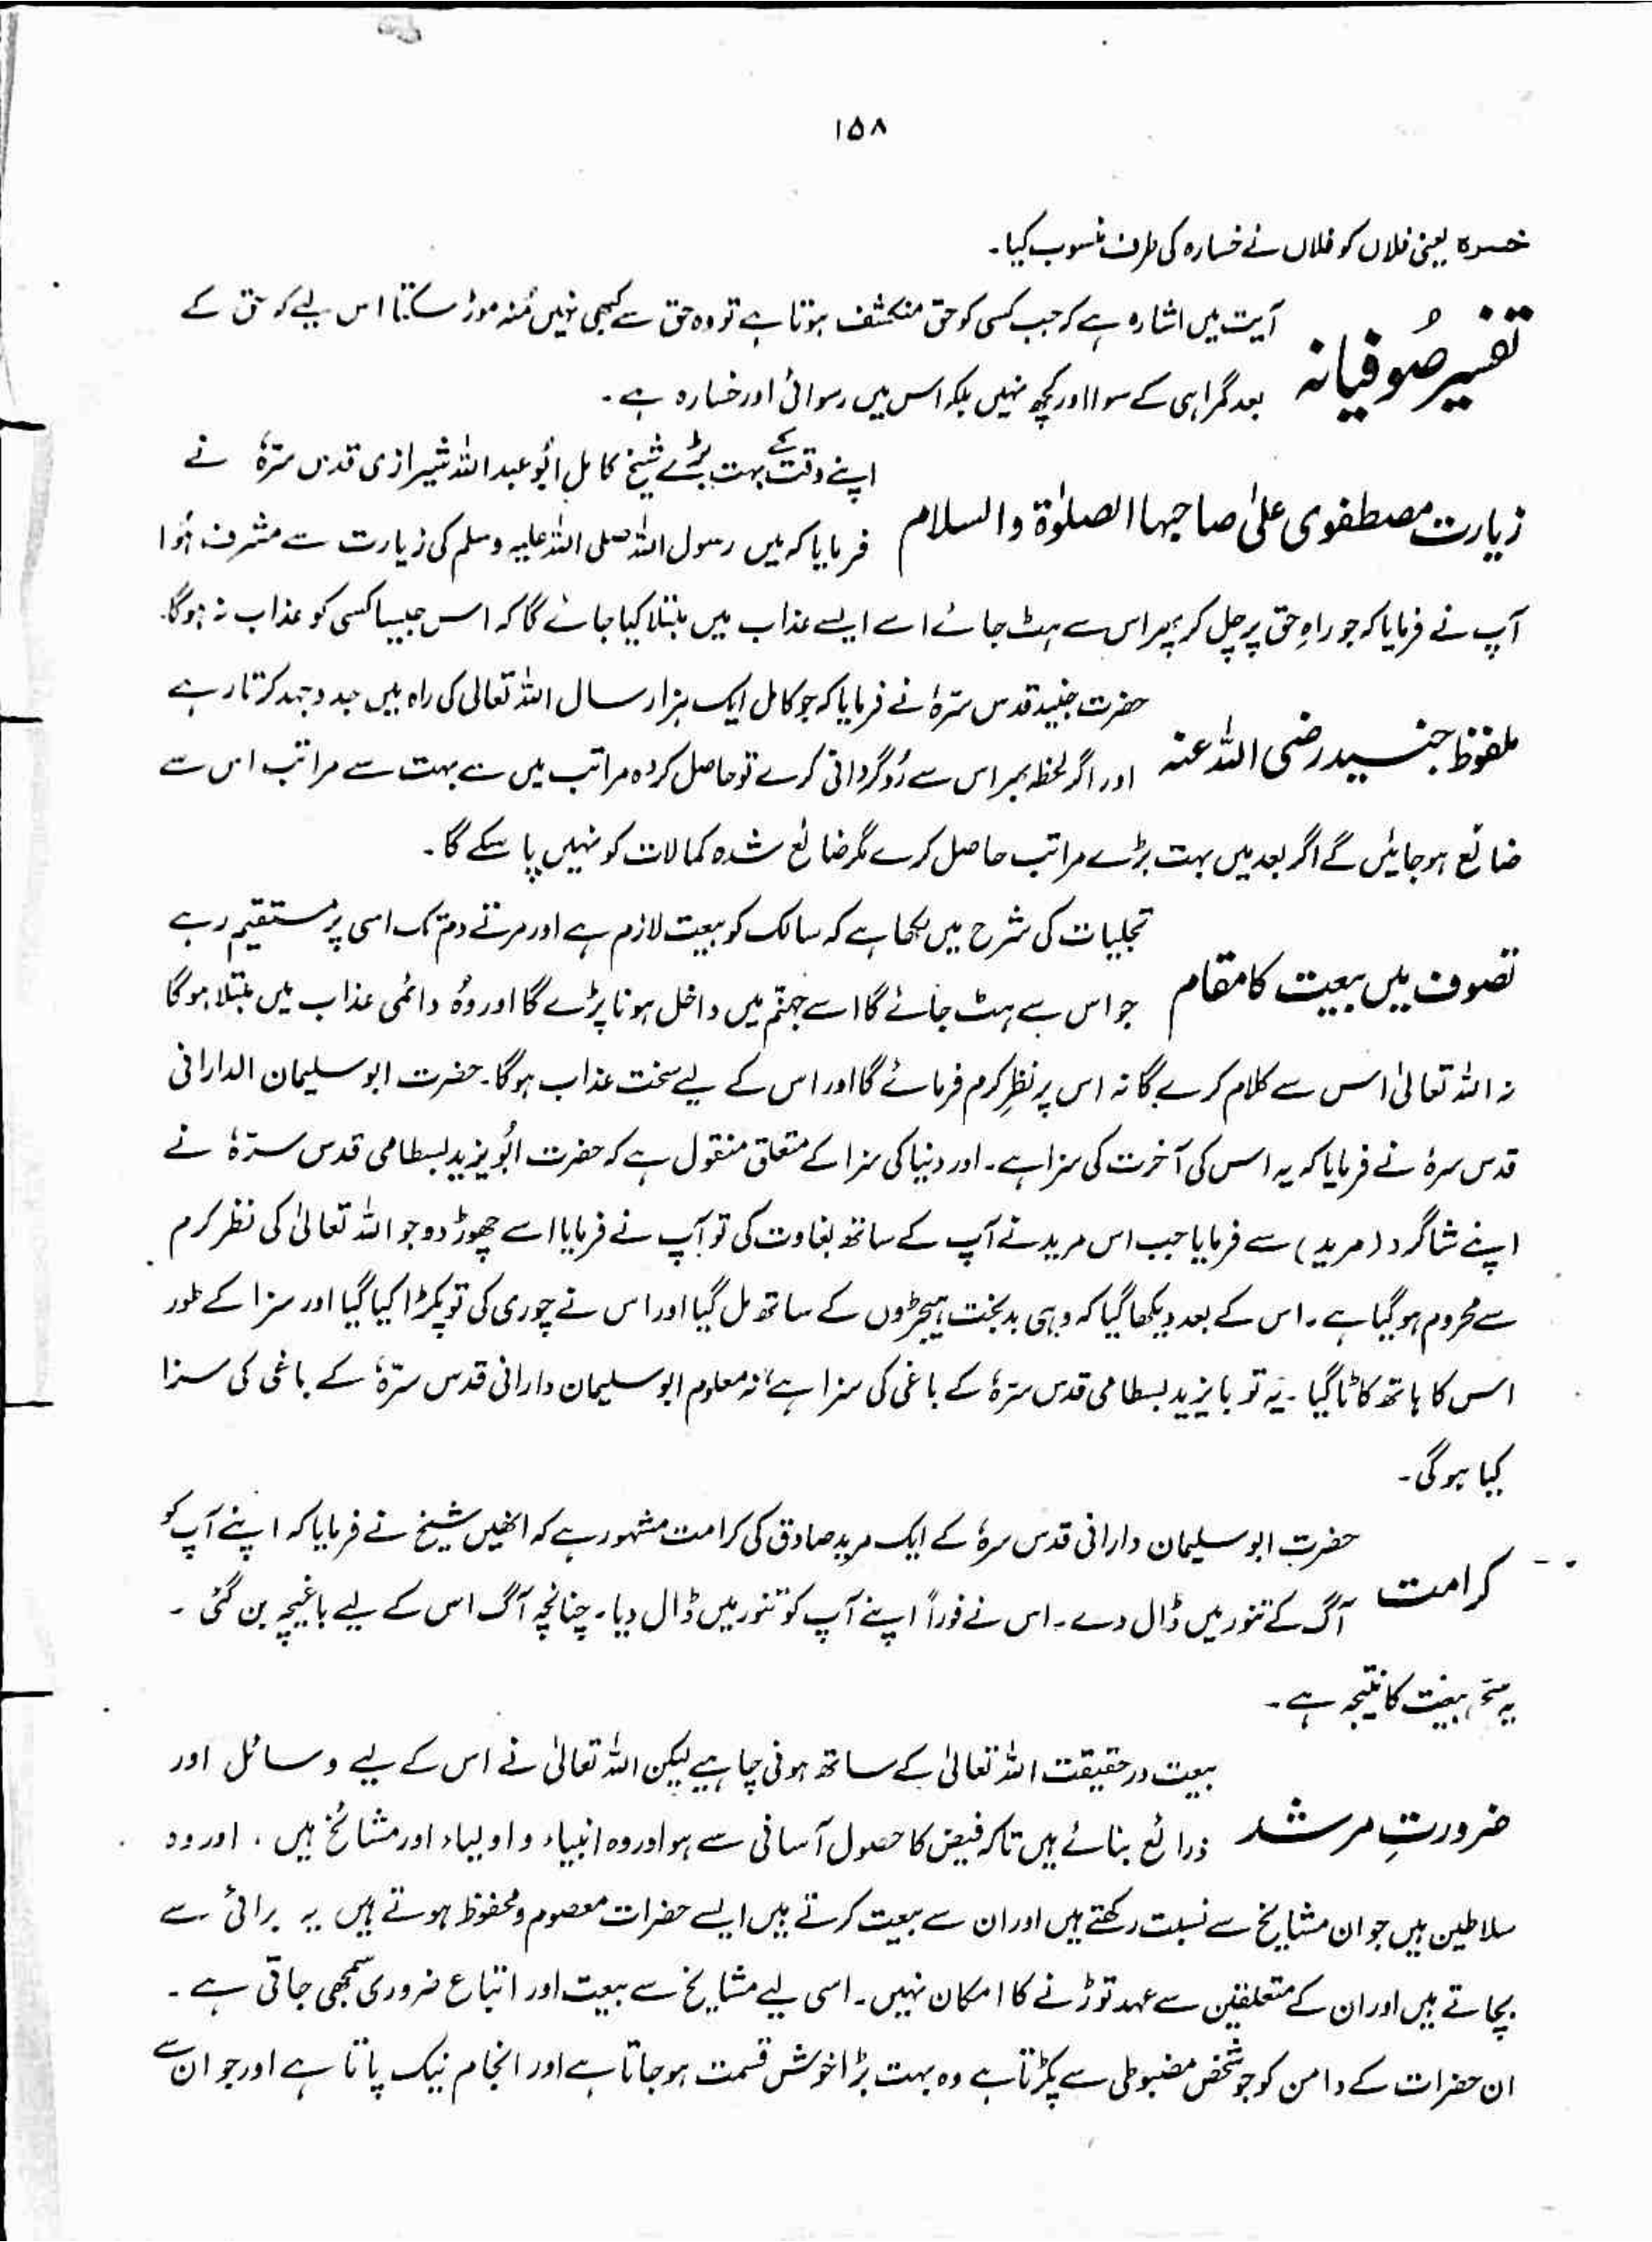 ۱۵۸
خسره یعنی فلاں کو فلاں نے خسارہ کی طرف منسوب کیا۔
تفسیر صُوفیانہ
آیت میں اشارہ ہے کہ جب کسی کو حق منکشف ہوتا ہے تو وہ حق سے کبھی نہیں مُنہ موڑ سکتا اس لیے کہ حق کے
بعد گمراہی کے سوا اور کچھ نہیں بلکہ اس میں رسوائی اور خسارہ ہے۔
زیارت مصطفوی علیٰ صاحبہا الصلوٰۃ والسلام
اپنے وقت کے بہت بڑے شیخ کامل ابُو عبداللہ شیرازی قدس سرّہٗ نے
فرمایا کہ میں رسول اللہ صلی اللہ علیہ وسلم کی زیارت سے مشرف ہُوا
آپ نے فرمایا کہ جو راہِ حق پر چل کر پھر اس سے ہٹ جائے اسے ایسے عذاب میں مبتلا کیا جائے گا کہ اس جیسا کسی کو عذاب نہ ہوگا۔
ملفوظ جنید رضی اللہ عنہ
حضرت جنید قدس سرّہٗ نے فرمایا کہ جو کامل ایک ہزار سال اللہ تعالی کی راہ میں جدوجہد کرتا رہے
اور اگر لحظہ بھر اس سے رُوگردانی کرے تو حاصل کردہ مراتب میں سے بہت سے مراتب اس سے
ضائع ہو جائیں گے اگر بعد میں بہت بڑے مراتب حاصل کرے مگر ضائع شدہ کمالات کو نہیں پا سکے گا۔
تصوف میں بیعت کا مقام
تجلیات کی شرح میں لکھا ہے کہ سالک کو بیعت لازم ہے اور مرتے دم تک اسی پر مستقیم رہے
جو اس سے ہٹ جائے گا اسے جہنّم میں داخل ہونا پڑے گا اور وُہ دائمی عذاب میں مبتلا ہوگا
نہ اللہ تعالیٰ اس سے کلام کرے گا نہ اس پر نظرِ کرم فرمائے گا اور اس کے لیے سخت عذاب ہوگا۔ حضرت ابو سلیمان الدارانی
قدس سرہٗ نے فرمایا کہ یہ اس کی آخرت کی سزا ہے۔ اور دنیا کی سزا کے متعلق منقول ہے کہ حضرت ابُو یزید بسطامی قدس سرّہٗ نے
اپنے شاگرد (مرید) سے فرمایا جب اس مرید نے آپ کے ساتھ بغاوت کی تو آپ نے فرمایا اسے چھوڑ دو جو اللہ تعالیٰ کی نظر کرم
سے محروم ہو گیا ہے۔ اس کے بعد دیکھا گیا کہ وہی بدبخت ہیجڑوں کے ساتھ مل گیا اور اس نے چوری کی تو پکڑا کیا گیا اور سزا کے طور
اس کا ہاتھ کاٹا گیا۔ یہ تو بایزید بسطامی قدس سرّہٗ کے باغی کی سزا ہے نہ معلوم ابو سلیمان دارانی قدس سرّہٗ کے باغی کی سزا
کیا ہوگی۔
کرامت
حضرت ابو سلیمان دارانی قدس سرہٗ کے ایک مرید صادق کی کرامت مشہور ہے کہ انھیں شیخ نے فرمایا کہ اپنے آپ کو
آگ کے تنور میں ڈال دے۔ اس نے فوراً اپنے آپ کو تنور میں ڈال دیا۔ چنانچہ آگ اس کے لیے باغیچہ بن گئی۔
یہ بیعت کا نتیجہ ہے۔
ضرورتِ مرشد
بیعت درحقیقت اللہ تعالیٰ کے ساتھ ہونی چاہیے لیکن اللہ تعالیٰ نے اس کے لیے وسائل اور
ذرائع بنائے ہیں تاکہ فیض کا حصول آسانی سے ہو اور وہ انبیاء و اولیاء اور مشائخ ہیں، اور وہ
سلاطین ہیں جو ان مشایخ سے نسبت رکھتے ہیں اور ان سے بیعت کرتے ہیں ایسے حضرات معصوم و محفوظ ہوتے ہیں یہ برائی سے
بچاتے ہیں اور ان کے متعلقین سے عہد توڑنے کا امکان نہیں۔ اسی لیے مشایخ سے بیعت اور اتباع ضروری سمجھی جاتی ہے۔
ان حضرات کے دامن کو جو شخص مضبوطی سے پکڑتا ہے وہ بہت بڑا خوش قسمت ہو جاتا ہے اور انجام نیک پاتا ہے اور جو ان سے